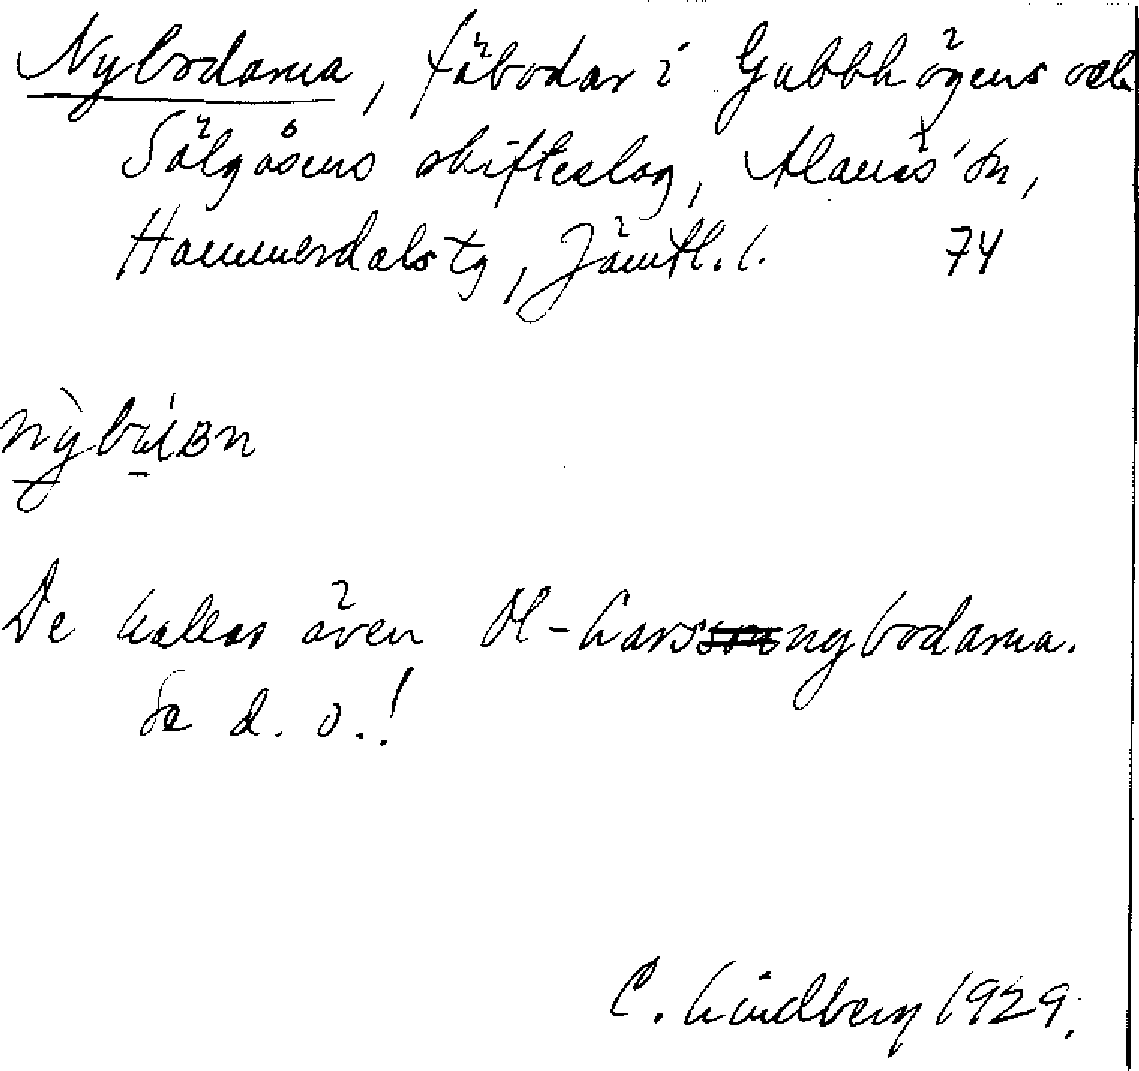 Nybodarna, fäbodar i Gubbhögens och
Sälgåsens skifteslag, Alanäs sn,
Hammerdals tg, Jämtl. l. 74
De kallas även Ol-Larsnybodarna.
Se d. o.!
C. Lindberg 1929.